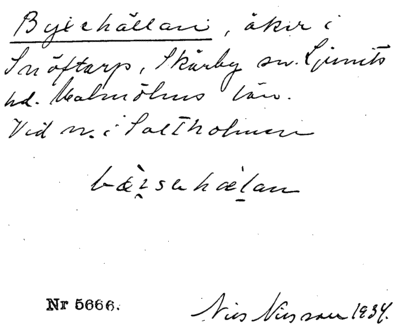 Byxehällan, åker i
Snöftarp, Skårby sn. Ljunits
hd. Malmöhus län.
Vid n. i Saltholmen
Nr 5666.
Nils Nilsson 1934.